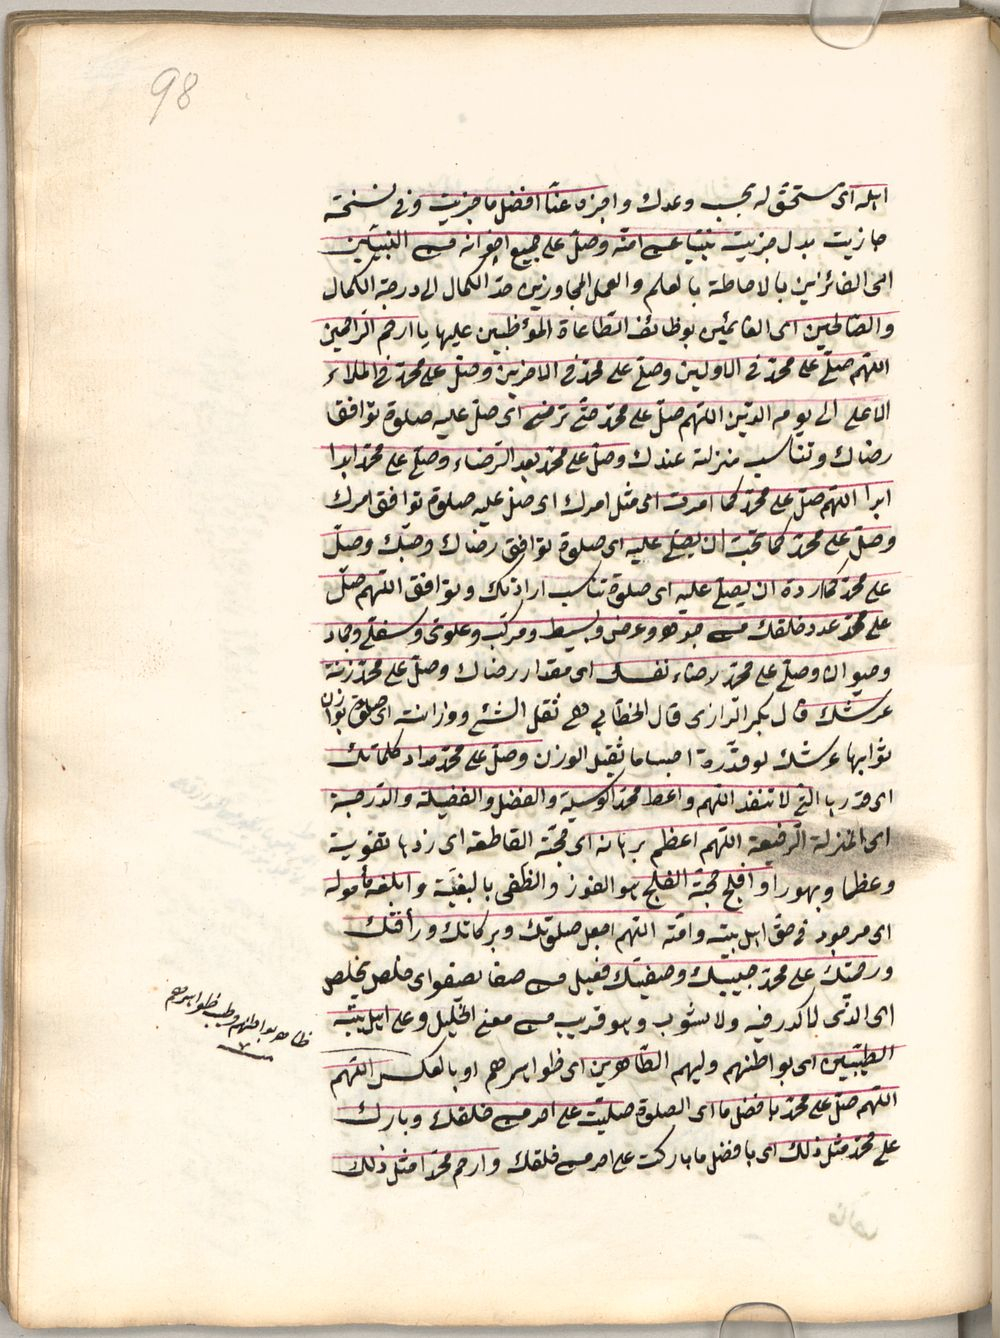 98
اهله اى مستحق له بحسب وعدك واجزه عنا افضل ما جزيت وفى نسخة
جازيت بدل جزيت نبيا عن امته وصل على جميع اخوانه من النبيين
اى الفائزين بالاحاطة بالعلم والعمل المجاوزين حد الكمال الى درجة الكمال
والصالحين اى القائمين بوظائف الطاعاة المؤظبين عليها يا ارحم الراحمين
اللهم صل على محمد فى الاولين وصل على محمد فى الاخرين وصل على محمد فى الملاء
الاعلى الى يوم الدين اللهم صل على محمد حتى ترضى اى صل عليه صلوة توافق
رضاك وتناسب منزلة عندك وصل على محمد بعد الرضاء وصل على محمد ابدا
ابدا اللهم صل على محمد كما امرت اى مثل امرك اى صل عليه صلوة توافق امرك
وصل على محمد كما تحب ان يصلى عليه اى صلوة توافق رضاك وحبك وصل
على محمد كما ردة ان يصلى عليه اى صلوة تناسب ارادتك وتوافق اللهم صل
على محمد عدد خلقك من جوهر وعرض وبسيط ومركب وعلوى وسفلى وجماد
وحيوان وصل على محمد رضاء نفسك اى مقدار رضاك وصل على محمد زنة
عرشك قال بكر الرازى قال الخطابى هى ثقل الشئ ووزانته اى صلوة توازن
ثوابها عرشك لو قدرة اجساما ثقيل الوزن وصل على محمد مداد كلماتك
اى قدرها التى لا تنفد اللهم واعط محمد الوسيلة والفضل والفضيلة والدرجة
اى المنزلة الرفيعة اللهم اعظم برهانه اى حجته القاطعة اى زدها تقوية
وعظما وبهورا وافلج حجته الفلج هو الفوز والظفى بالبغية وابلغه مأموله
اى مرجوه فى حق اهل بيته وامته اللهم اجعل صلوتك وبركاتك ورأفتك
ورحمتك على محمد حبيبك وصفيك فعيل من صفا يصفو اى خلص يخلص
اى الذى لا كدر فيه ولا يشوب وهو قريب من معنى الخليل وعلى اهل بيته
الطيبين اى بواطنهم وليهم الطاهرين اى ظواهرهم او بالعكس اللهم
اللهم صل على محمد بافضل ما اى الصلوة صليت على احد من خلقك وبارك
على محمد مثل ذلك اى بافضل ما باركت على احد من خلقك وارحم محمدا مثل ذلك
ظاهر بواطنهم وطيب ظواهرهم